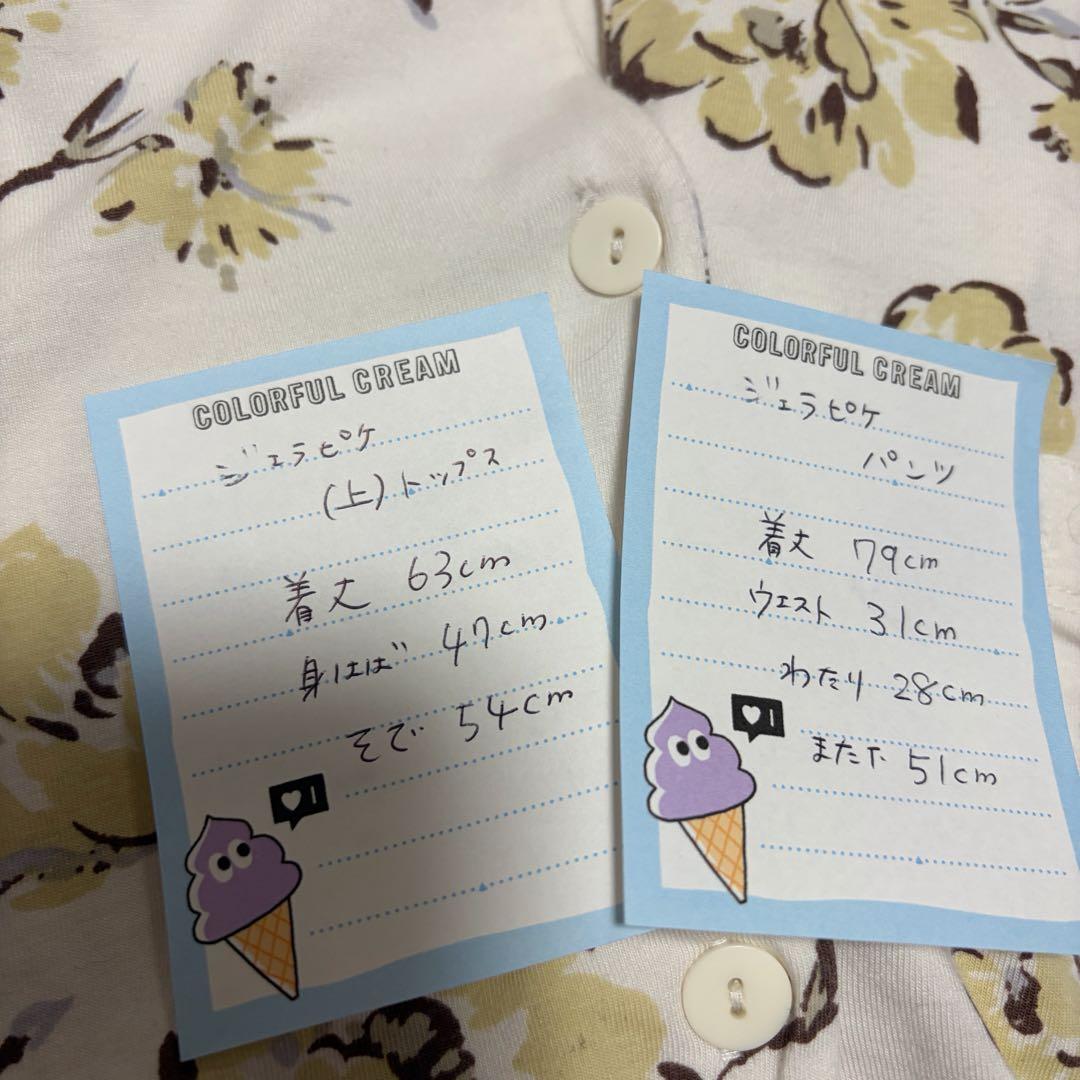 COLORFUL CREAM
ジェラピケ
(上)トップス
着丈 63cm
身はば 47cm
そで 54cm
COLORFUL CREAM
ジェラピケ
パンツ
着丈 79cm
ウエスト 31cm
わたり 28cm
また下 51cm